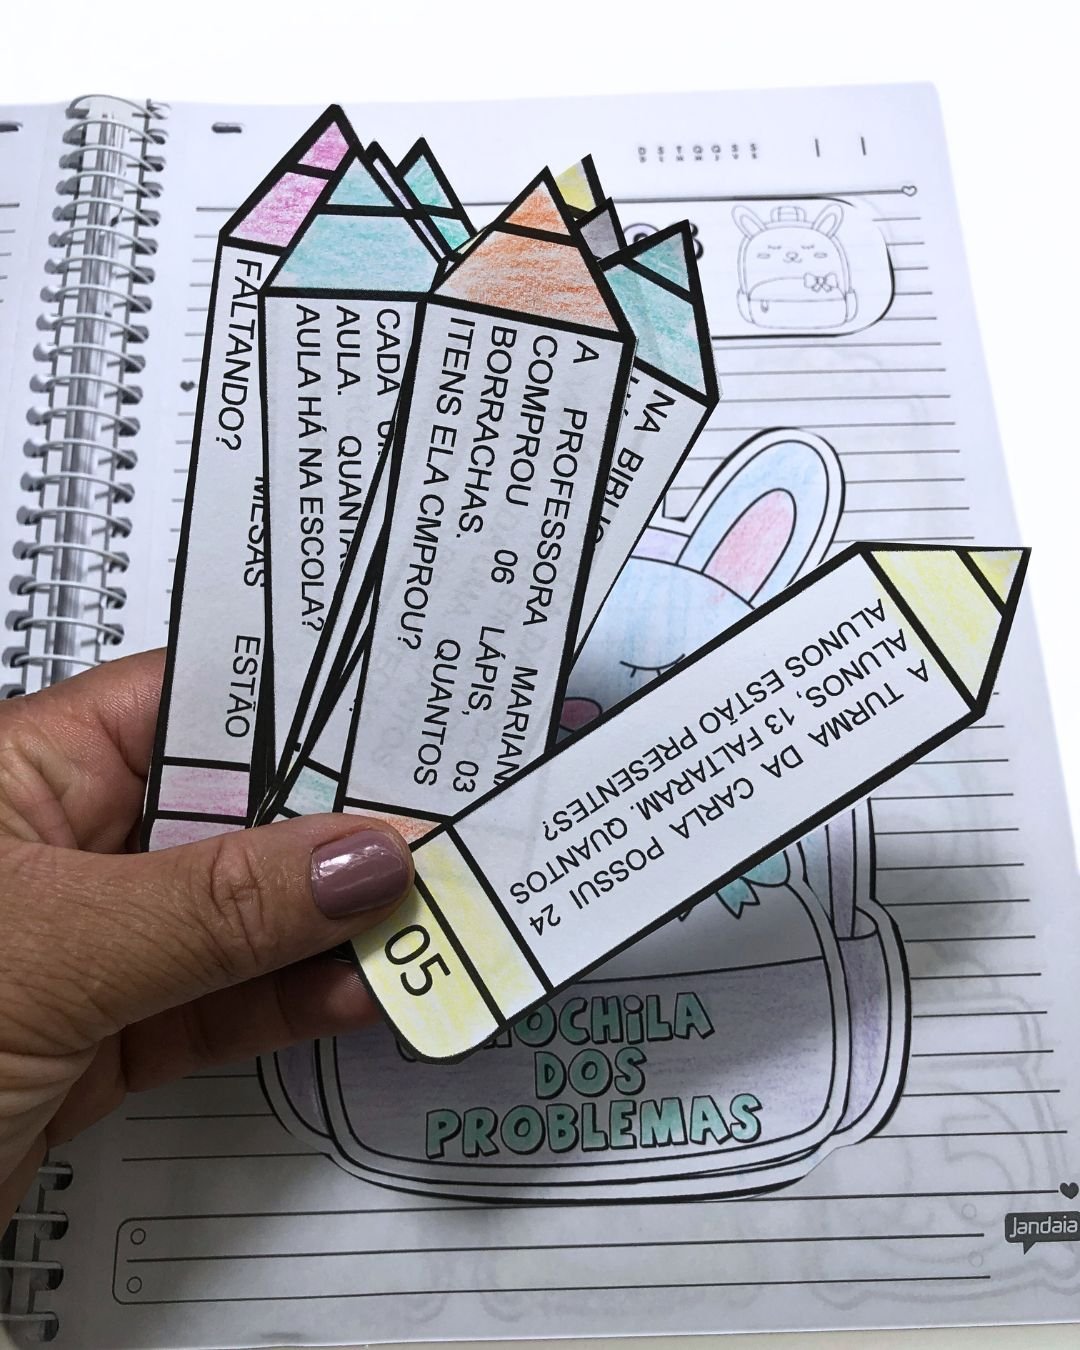 FALTANDO?
MESAS ESTÃO
CADA
AULA. QUANTAS
AULA HÁ NA ESCOLA?
A PROFESSORA MARIAN
COMPROU 06 LÁPIS, 03
BORRACHAS. QUANTOS
ITENS ELA CMPROU?
NA
A TURMA DA CARLA POSSUI 24
ALUNOS, 13 FALTARAM. QUANTOS
ALUNOS ESTÃO PRESENTES?
05
MOCHILA
DOS
PROBLEMAS
D S T Q Q S S
Jandaia